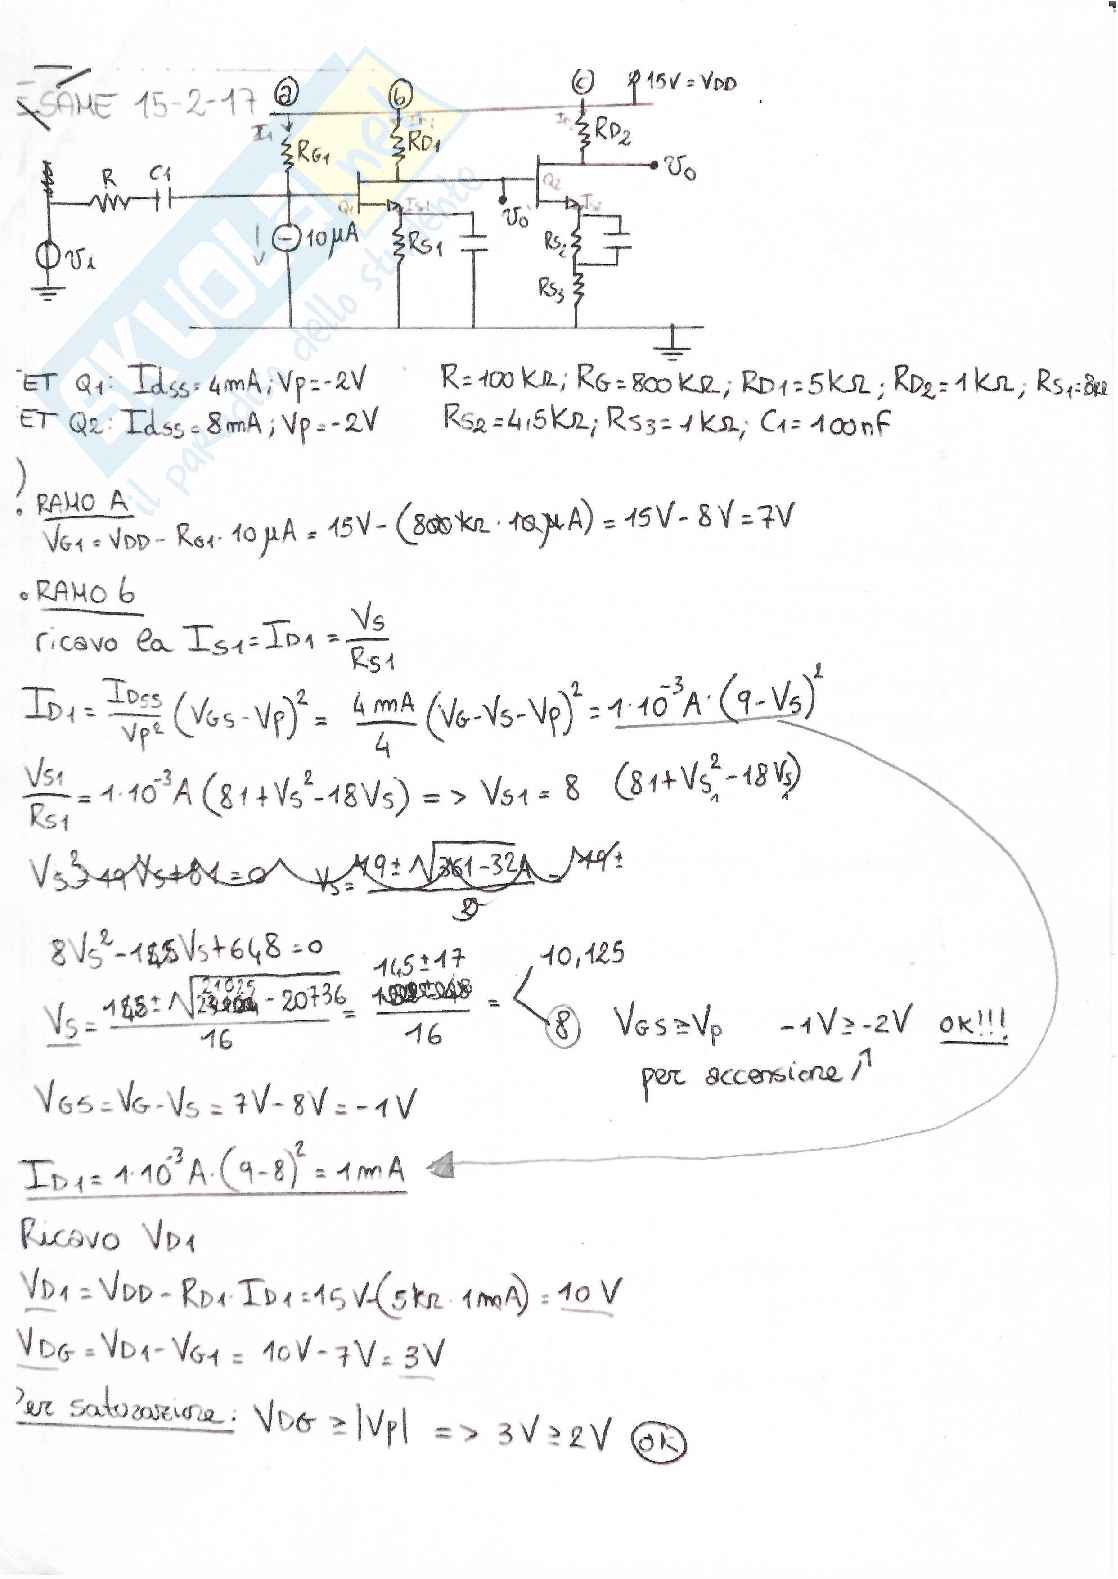 ESAME 15-2-17
a b c
15V = VDD
I1 RG1 RD1 RD2
R C1 Q1 Q2 Vo
Vo'
Vi 10µA IS1 RS1 RS2 IS2
RS3
SKUOLA.net
il paradiso dello studente
ET Q1: Idss = 4mA; Vp = -2V R = 100KΩ; RG = 800KΩ; RD1 = 5KΩ; RD2 = 1KΩ; RS1 = 8KΩ
ET Q2: Idss = 8mA; Vp = -2V RS2 = 4,5KΩ; RS3 = 1KΩ; C1 = 100nF
)
• RAMO A
VG1 = VDD - RG1 · 10µA = 15V - (800KΩ · 10µA) = 15V - 8V = 7V
• RAMO b
ricavo la IS1 = ID1 = VS/RS1
ID1 = IDSS/Vp² (VGS - Vp)² = 4mA/4 (VG - VS - Vp)² = 1·10⁻³A · (9 - VS)²
VS1/RS1 = 1·10⁻³A (81 + VS² - 18VS) => VS1 = 8 (81 + VS1² - 18VS1)
VS² - 19VS + 81 = 0 VS = 19 ± √361-324 / 2 = 19 ±
8VS² - 145VS + 648 = 0
VS = 145 ± √21025 - 20736 / 16 = 145 ± 17 / 16 = 10,125
8 VGS ≥ Vp -1V ≥ -2V OK!!!
per accensione
VGS = VG - VS = 7V - 8V = -1V
ID1 = 1·10⁻³A · (9 - 8)² = 1mA
Ricavo VD1
VD1 = VDD - RD1 · ID1 = 15V - (5KΩ · 1mA) = 10V
VDG = VD1 - VG1 = 10V - 7V = 3V
Per saturazione: VDG ≥ |Vp| => 3V ≥ 2V OK